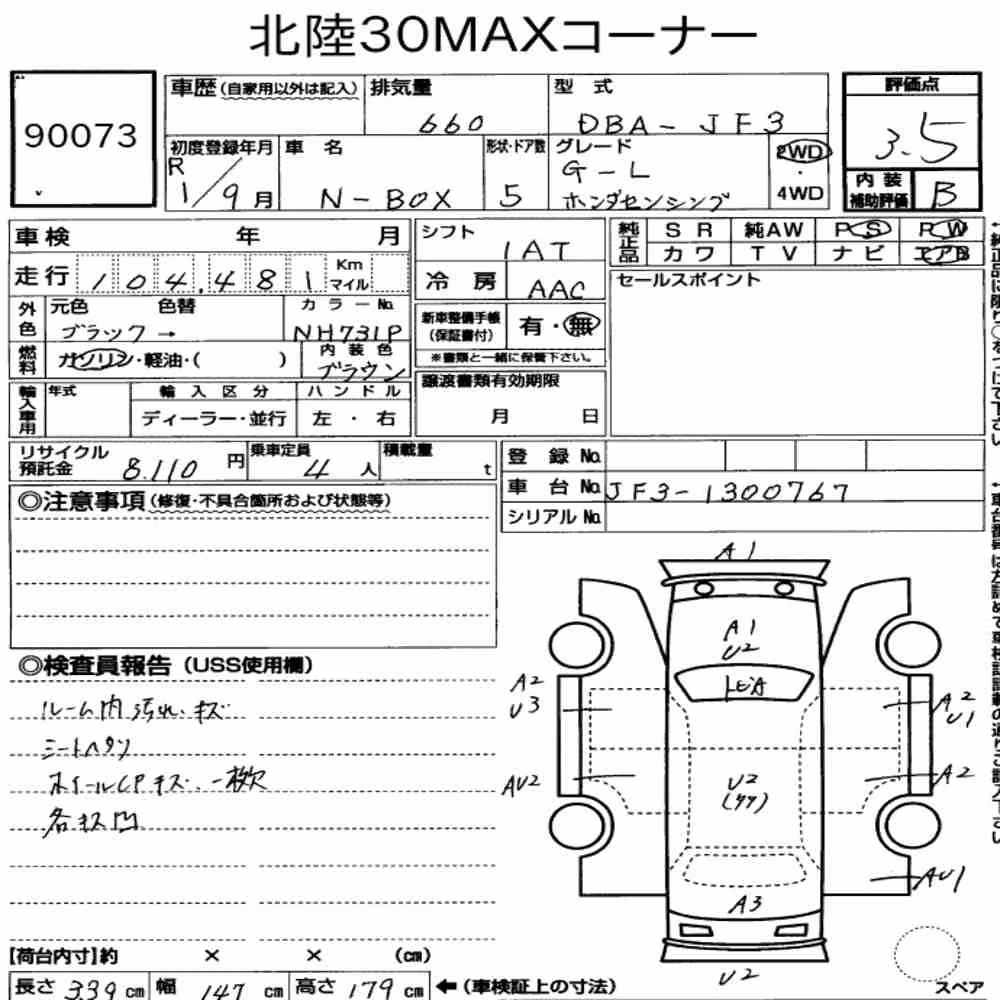 北陸30MAXコーナー
90073
車歴(自家用以外は記入) 排気量 660 型式 DBA-JF3
初度登録年月 R1/9月 車名 N-BOX 形状・ドア数 5 グレード G-L ホンダセンシング 2WD・4WD
評価点 3.5
内装補助評価 B
車検 年 月
走行 104,481 Km マイル
外色 元色 ブラック→ 色替 カラーNo. NH731P
燃料 ガソリン・軽油・( ) 内装色 ブラウン
輸入車用 年式 輸入区分 ディーラー・並行 ハンドル 左・右
シフト IAT
冷房 AAC
新車整備手帳(保証書付) 有・無
※書類と一緒に保管下さい。
譲渡書類有効期限
月 日
純正品 SR 純AW PS PW
カワ TV ナビ エアB
セールスポイント
リサイクル預託金 8,110 円 乗車定員 4 人 積載量 t
登録No.
車台No. JF3-1300767
シリアルNo.
◎注意事項(修復・不具合箇所および状態等)
◎検査員報告(USS使用欄)
ルーム内汚れ、キズ
シートヘタリ
ホイールCPキズ、一枚欠
各キズ凹
A1
A1
U2
A2
U3
A2
U1
AU2
U2
A2
AU1
A3
U2
スペア
【荷台内寸】約 × × (cm)
長さ 339 cm 幅 147 cm 高さ 179 cm ←(車検証上の寸法)